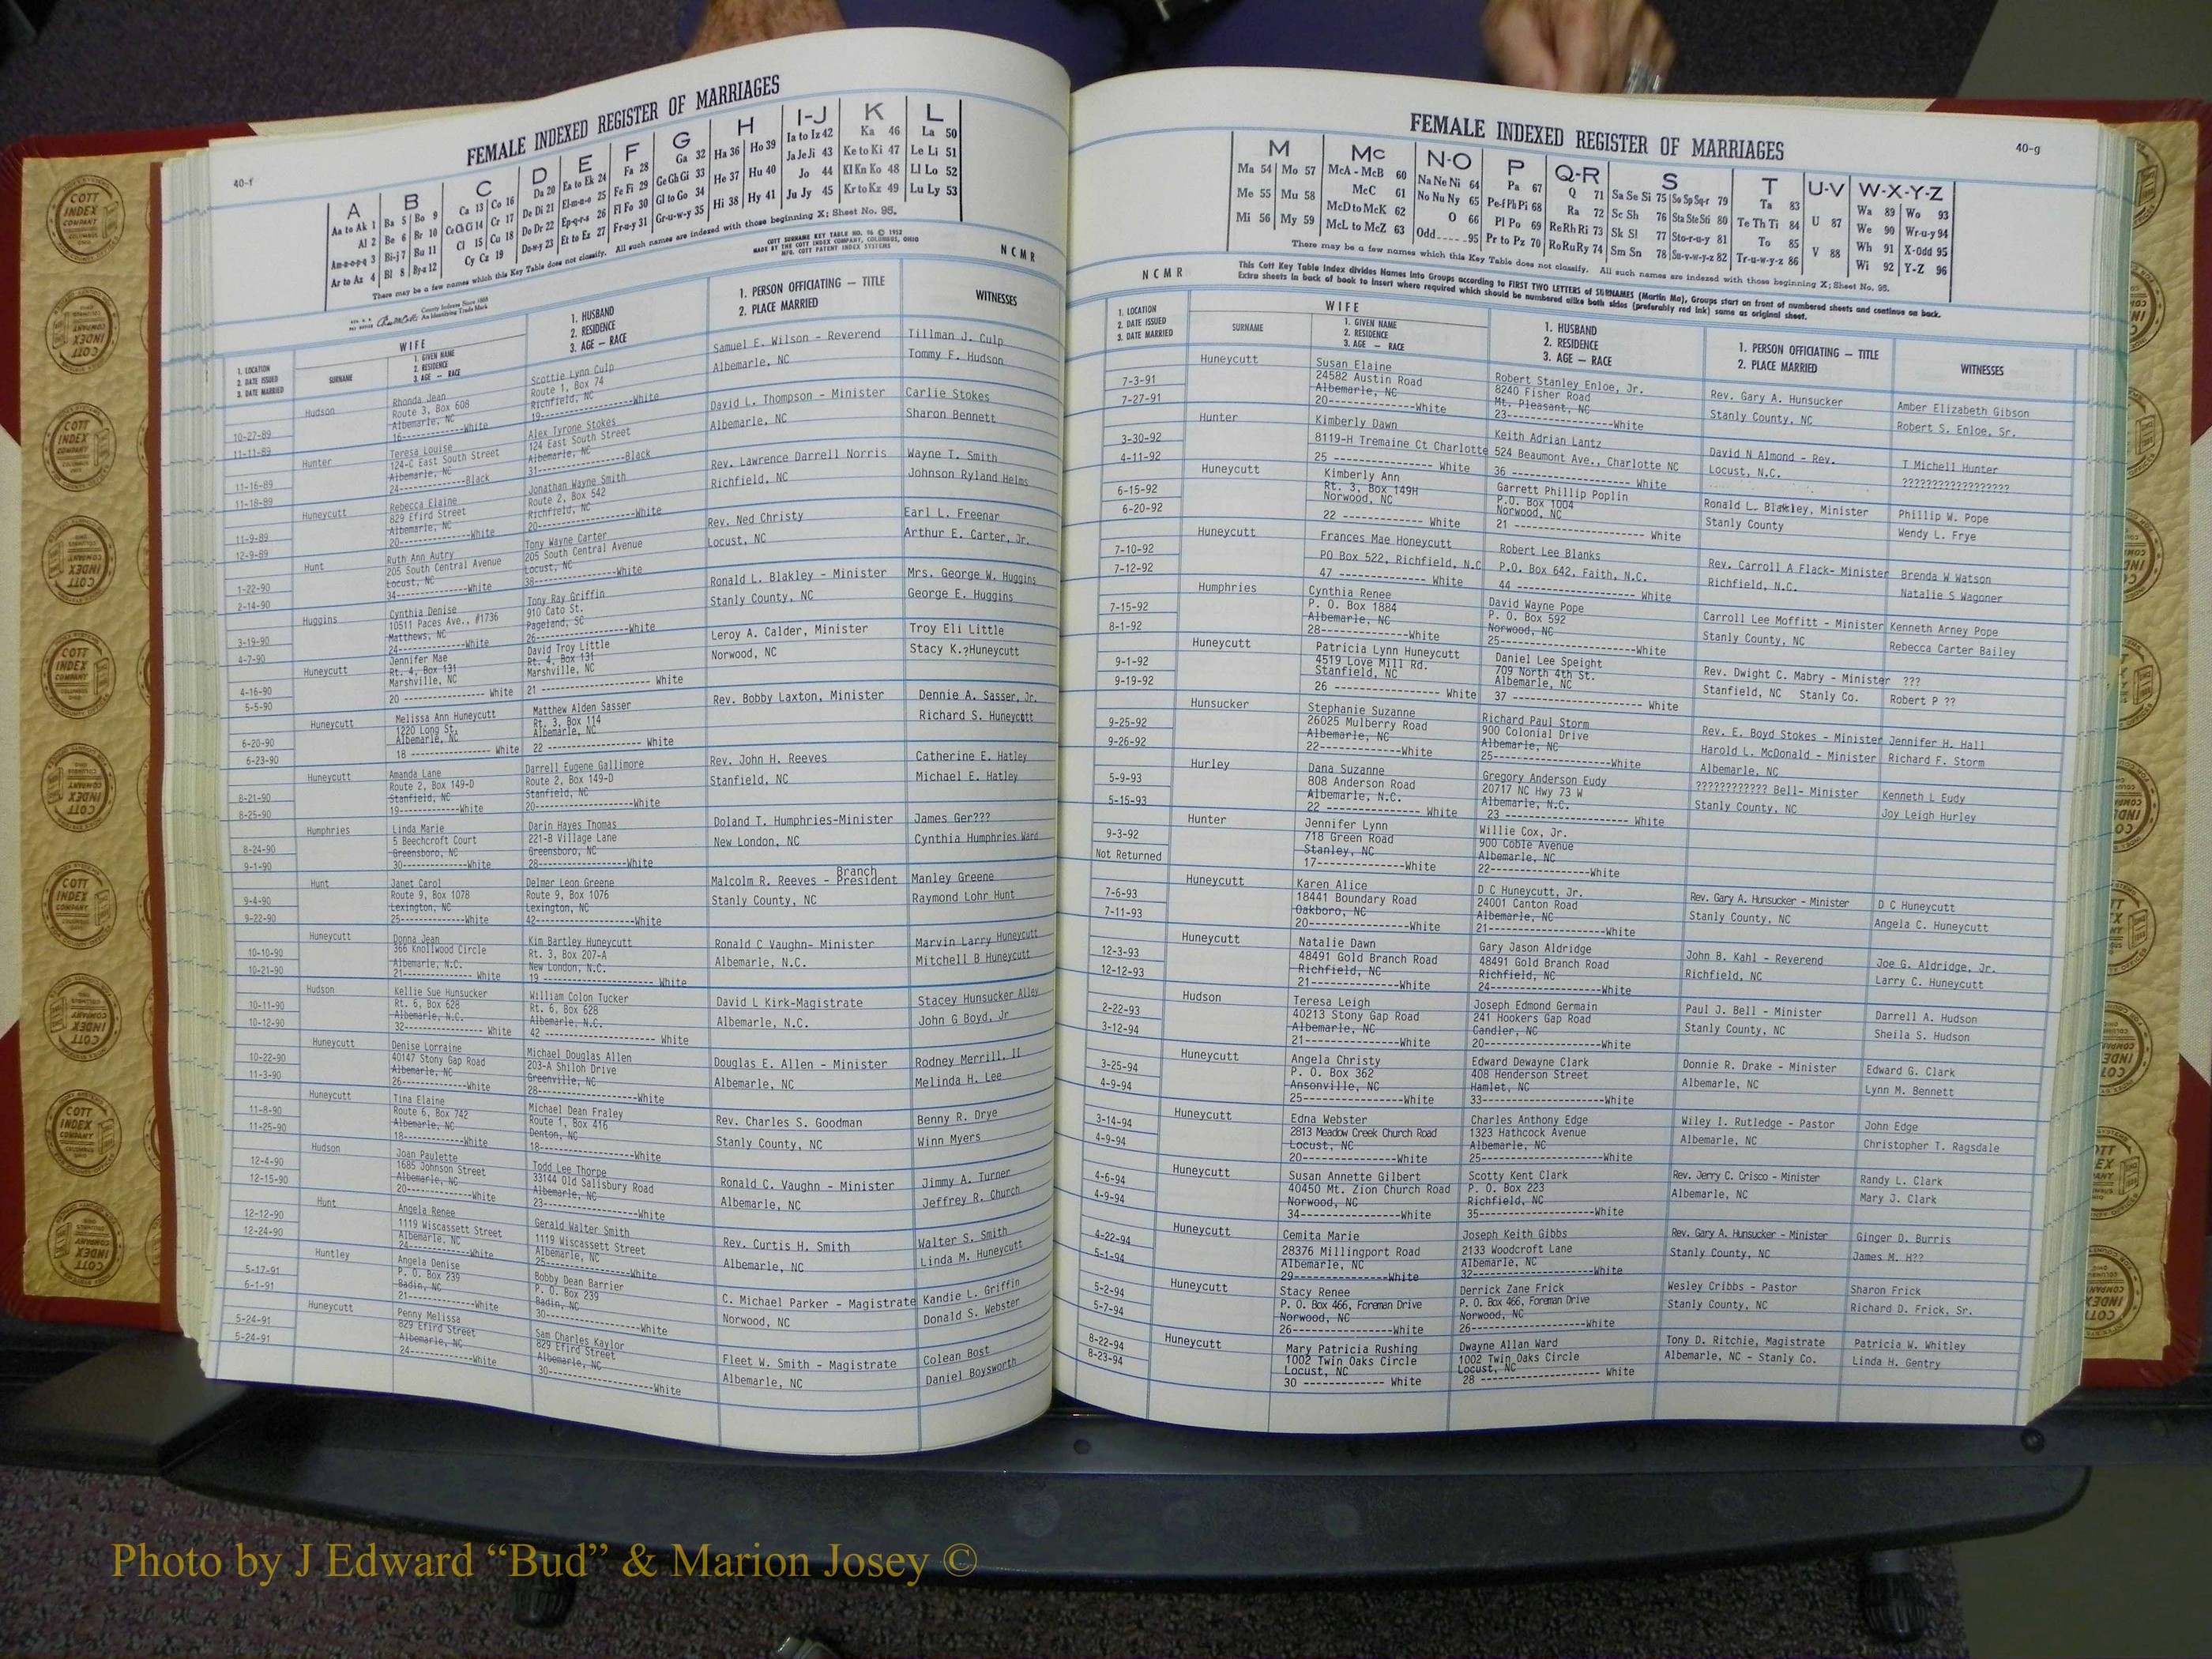 FEMALE INDEXED REGISTER OF MARRIAGES
40-f
A B C D E F G H I-J K L
Aa to Ak 1 Ba 5 Bo 9 Ca 13 Co 16 Da 20 Ea to Ek 24 Fa 28 Ga 32 Ha 36 Ho 39 Ia to Iz 42 Ka 46 La 50
Al 2 Be 6 Br 10 Ce Ch Ci 14 Cr 17 De Di 21 El-m-n-o 25 Fe Fi 29 Ge Gh Gi 33 He 37 Hu 40 Ja Je Ji 43 Ke to Ki 47 Le Li 51
Am-n-o-p-q 3 Bi-j 7 Bu 11 Cl 15 Cu 18 Do Dr 22 Ep-q-r-s 26 Fl Fo 30 Gl to Go 34 Hi 38 Hy 41 Jo 44 Kl Kn Ko 48 Ll Lo 52
Ar to Az 4 Bl 8 By-z 12 Cy Cz 19 Du-w-y 23 Et to Ez 27 Fr-u-y 31 Gr-u-w-y 35 Ju Jy 45 Kr to Kz 49 Lu Ly 53
There may be a few names which this Key Table does not classify. All such names are indexed with those beginning X; Sheet No. 95.
COTT SURNAME KEY TABLE NO. 96 © 1952
MADE BY THE COTT INDEX COMPANY, COLUMBUS, OHIO
MFG. COTT PATENT INDEX SYSTEMS
NCMR
County Indexes Since 1888
An Identifying Trade Mark
1. LOCATION
2. DATE ISSUED
3. DATE MARRIED
WIFE
SURNAME
1. GIVEN NAME
2. RESIDENCE
3. AGE — RACE
1. HUSBAND
2. RESIDENCE
3. AGE — RACE
1. PERSON OFFICIATING — TITLE
2. PLACE MARRIED
WITNESSES
Hudson Rhonda Jean Scottie Lynn Culp Samuel E. Wilson - Reverend Tillman J. Culp
Route 3, Box 608 Route 1, Box 74 Albemarle, NC Tommy F. Hudson
10-27-89 Albemarle, NC Richfield, NC
11-11-89 16-----------White 19-----------White
Hunter Teresa Louise Alex Tyrone Stokes David L. Thompson - Minister Carlie Stokes
124-C East South Street 124 East South Street Albemarle, NC Sharon Bennett
11-16-89 Albemarle, NC Albemarle, NC
11-18-89 24-----------Black 31-----------Black
Huneycutt Rebecca Elaine Jonathan Wayne Smith Rev. Lawrence Darrell Norris Wayne T. Smith
829 Efird Street Route 2, Box 542 Richfield, NC Johnson Ryland Helms
11-9-89 Albemarle, NC Richfield, NC
12-9-89 20-----------White 20-----------White
Hunt Ruth Ann Autry Tony Wayne Carter Rev. Ned Christy Earl L. Freenar
205 South Central Avenue 205 South Central Avenue Locust, NC Arthur E. Carter, Jr.
1-22-90 Locust, NC Locust, NC
2-14-90 34-----------White 38-----------White
Huggins Cynthia Denise Tony Ray Griffin Ronald L. Blakley - Minister Mrs. George W. Huggins
10511 Paces Ave., #1736 910 Cato St. Stanly County, NC George E. Huggins
3-19-90 Matthews, NC Pageland, SC
4-7-90 24-----------White 26-----------White
Huneycutt Jennifer Mae David Troy Little Leroy A. Calder, Minister Troy Eli Little
Rt. 4, Box 131 Rt. 4, Box 131 Norwood, NC Stacy K.?Huneycutt
4-16-90 Marshville, NC Marshville, NC
5-5-90 20 ----------- White 21 ----------- White
Huneycutt Melissa Ann Huneycutt Matthew Alden Sasser Rev. Bobby Laxton, Minister Dennie A. Sasser, Jr.
1220 Long St. Rt. 3, Box 114 Richard S. Huneycutt
6-20-90 Albemarle, NC Albemarle, NC
6-23-90 18 ----------- White 22 ----------- White
Huneycutt Amanda Lane Darrell Eugene Gallimore Rev. John H. Reeves Catherine E. Hatley
Route 2, Box 149-D Route 2, Box 149-D Stanfield, NC Michael E. Hatley
8-21-90 Stanfield, NC Stanfield, NC
8-25-90 19-----------White 20-----------White
Humphries Linda Marie Darin Hayes Thomas Doland T. Humphries-Minister James Ger???
5 Beechcroft Court 221-B Village Lane New London, NC Cynthia Humphries Ward
8-24-90 Greensboro, NC Greensboro, NC
9-1-90 30-----------White 28-----------White
Hunt Janet Carol Delmer Leon Greene Malcolm R. Reeves - Branch President Manley Greene
9-4-90 Route 9, Box 1078 Route 9, Box 1076 Stanly County, NC Raymond Lohr Hunt
Lexington, NC Lexington, NC
9-22-90 25-----------White 42-----------White
Huneycutt Donna Jean Kim Bartley Huneycutt Ronald C Vaughn- Minister Marvin Larry Huneycutt
366 Knollwood Circle Rt. 3, Box 207-A Albemarle, N.C. Mitchell B Huneycutt
10-10-90 Albemarle, N.C. New London, N.C.
10-21-90 21----------- White 19 ----------- White
Hudson Kellie Sue Hunsucker William Colon Tucker David L Kirk-Magistrate Stacey Hunsucker Alley
10-11-90 Rt. 6, Box 628 Rt. 6, Box 628 Albemarle, N.C. John G Boyd, Jr
Albemarle, N.C. Albemarle, N.C.
10-12-90 32----------- White 42 ----------- White
Huneycutt Denise Lorraine Michael Douglas Allen Douglas E. Allen - Minister Rodney Merrill, II
10-22-90 40147 Stony Gap Road 203-A Shiloh Drive Albemarle, NC Melinda H. Lee
11-3-90 Albemarle, NC Greenville, NC
26-----------White 28-----------White
Huneycutt Tina Elaine Michael Dean Fraley Rev. Charles S. Goodman Benny R. Drye
11-8-90 Route 6, Box 742 Route 1, Box 416 Stanly County, NC Winn Myers
11-25-90 Albemarle, NC Denton, NC
18-----------White 18-----------White
Hudson Joan Paulette Todd Lee Thorpe Ronald C. Vaughn - Minister Jimmy A. Turner
12-4-90 1685 Johnson Street 33144 Old Salisbury Road Albemarle, NC Jeffrey R. Church
12-15-90 Albemarle, NC Albemarle, NC
20-----------White 23-----------White
Hunt Angela Renee Gerald Walter Smith Rev. Curtis H. Smith Walter S. Smith
12-12-90 1119 Wiscassett Street 1119 Wiscassett Street Albemarle, NC Linda M. Huneycutt
12-24-90 Albemarle, NC Albemarle, NC
24-----------White 25-----------White
Huntley Angela Denise Bobby Dean Barrier C. Michael Parker - Magistrate Kandie L. Griffin
5-17-91 P. O. Box 239 P. O. Box 239 Norwood, NC Donald S. Webster
6-1-91 Badin, NC Badin, NC
21-----------White 30-----------White
Huneycutt Penny Melissa Sam Charles Kaylor Fleet W. Smith - Magistrate Colean Bost
5-24-91 829 Efird Street 829 Efird Street Albemarle, NC Daniel Boysworth
5-24-91 Albemarle, NC Albemarle, NC
24-----------White 30-----------White
FEMALE INDEXED REGISTER OF MARRIAGES
40-g
M Mc N-O P Q-R S T U-V W-X-Y-Z
Ma 54 Mo 57 McA - McB 60 Na Ne Ni 64 Pa 67 Q 71 Sa Se Si 75 So Sp Sq-r 79 Ta 83 U 87 Wa 89 Wo 93
Me 55 Mu 58 McC 61 No Nu Ny 65 Pe-f Ph Pi 68 Ra 72 Sc Sh 76 Sta Ste Sti 80 Te Th Ti 84 V 88 We 90 Wr-u-y 94
Mi 56 My 59 McD to McK 62 O 66 Pl Po 69 Re Rh Ri 73 Sk Sl 77 Sto-r-u-y 81 To 85 Wh 91 X-Odd 95
McL to McZ 63 Odd-----95 Pr to Pz 70 Ro Ru Ry 74 Sm Sn 78 Su-v-w-y-z 82 Tr-u-w-y-z 86 Wi 92 Y-Z 96
There may be a few names which this Key Table does not classify. All such names are indexed with those beginning X; Sheet No. 95.
NCMR
This Cott Key Table Index divides Names into Groups according to FIRST TWO LETTERS of SURNAMES (Martin Ma), Groups start on front of numbered sheets and continue on back.
Extra sheets in back of book to insert where required which should be numbered alike both sides (preferably red ink) same as original sheet.
1. LOCATION
2. DATE ISSUED
3. DATE MARRIED
WIFE
SURNAME
1. GIVEN NAME
2. RESIDENCE
3. AGE — RACE
1. HUSBAND
2. RESIDENCE
3. AGE — RACE
1. PERSON OFFICIATING — TITLE
2. PLACE MARRIED
WITNESSES
Huneycutt Susan Elaine Robert Stanley Enloe, Jr. Rev. Gary A. Hunsucker Amber Elizabeth Gibson
7-3-91 24582 Austin Road 8240 Fisher Road Stanly County, NC Robert S. Enloe, Sr.
7-27-91 Albemarle, NC Mt. Pleasant, NC
20-----------White 23-----------White
Hunter Kimberly Dawn Keith Adrian Lantz David N Almond - Rev. T Michell Hunter
3-30-92 8119-H Tremaine Ct Charlotte 524 Beaumont Ave., Charlotte NC Locust, N.C. ??????????????????
4-11-92 25 ----------- White 36 ----------- White
Huneycutt Kimberly Ann Garrett Phillip Poplin Ronald L. Blakley, Minister Phillip W. Pope
6-15-92 Rt. 3, Box 149H P.O. Box 1004 Stanly County Wendy L. Frye
6-20-92 Norwood, NC Norwood, NC
22 ----------- White 21 ----------- White
Huneycutt Frances Mae Honeycutt Robert Lee Blanks Rev. Carroll A Flack- Minister Brenda W Watson
7-10-92 PO Box 522, Richfield, N.C P.O. Box 642, Faith, N.C. Richfield, N.C. Natalie S Wagoner
7-12-92 47 ----------- White 44 ----------- White
Humphries Cynthia Renee David Wayne Pope Carroll Lee Moffitt - Minister Kenneth Arney Pope
7-15-92 P. O. Box 1884 P. O. Box 592 Stanly County, NC Rebecca Carter Bailey
8-1-92 Albemarle, NC Norwood, NC
28-----------White 25-----------White
Huneycutt Patricia Lynn Huneycutt Daniel Lee Speight Rev. Dwight C. Mabry - Minister ???
9-1-92 4519 Love Mill Rd. 709 North 4th St. Stanfield, NC Stanly Co. Robert P ??
9-19-92 Stanfield, NC Albemarle, NC
26 ----------- White 37 ----------- White
Hunsucker Stephanie Suzanne Richard Paul Storm Rev. E. Boyd Stokes - Minister Jennifer H. Hall
9-25-92 26025 Mulberry Road 900 Colonial Drive Harold L. McDonald - Minister Richard F. Storm
9-26-92 Albemarle, NC Albemarle, NC Albemarle, NC
22-----------White 25-----------White
Hurley Dana Suzanne Gregory Anderson Eudy ???????????? Bell- Minister Kenneth L Eudy
5-9-93 808 Anderson Road 20717 NC Hwy 73 W Stanly County, NC Joy Leigh Hurley
5-15-93 Albemarle, N.C. Albemarle, N.C.
22 ----------- White 23 ----------- White
Hunter Jennifer Lynn Willie Cox, Jr.
9-3-92 718 Green Road 900 Coble Avenue
Not Returned Stanley, NC Albemarle, NC
17-----------White 22-----------White
Huneycutt Karen Alice D C Huneycutt, Jr. Rev. Gary A. Hunsucker - Minister D C Huneycutt
7-6-93 18441 Boundary Road 24001 Canton Road Stanly County, NC Angela C. Huneycutt
7-11-93 Oakboro, NC Albemarle, NC
20-----------White 21-----------White
Huneycutt Natalie Dawn Gary Jason Aldridge John B. Kahl - Reverend Joe G. Aldridge, Jr.
12-3-93 48491 Gold Branch Road 48491 Gold Branch Road Richfield, NC Larry C. Huneycutt
12-12-93 Richfield, NC Richfield, NC
21-----------White 24-----------White
Hudson Teresa Leigh Joseph Edmond Germain Paul J. Bell - Minister Darrell A. Hudson
2-22-93 40213 Stony Gap Road 241 Hookers Gap Road Stanly County, NC Sheila S. Hudson
3-12-94 Albemarle, NC Candler, NC
21-----------White 20-----------White
Huneycutt Angela Christy Edward Dewayne Clark Donnie R. Drake - Minister Edward G. Clark
3-25-94 P. O. Box 362 408 Henderson Street Albemarle, NC Lynn M. Bennett
4-9-94 Ansonville, NC Hamlet, NC
25-----------White 33-----------White
Huneycutt Edna Webster Charles Anthony Edge Wiley I. Rutledge - Pastor John Edge
3-14-94 2813 Meadow Creek Church Road 1323 Hathcock Avenue Albemarle, NC Christopher T. Ragsdale
4-9-94 Locust, NC Albemarle, NC
20-----------White 25-----------White
Huneycutt Susan Annette Gilbert Scotty Kent Clark Rev. Jerry C. Crisco - Minister Randy L. Clark
4-6-94 40450 Mt. Zion Church Road P. O. Box 223 Albemarle, NC Mary J. Clark
4-9-94 Norwood, NC Richfield, NC
34-----------White 35-----------White
Huneycutt Cemita Marie Joseph Keith Gibbs Rev. Gary A. Hunsucker - Minister Ginger D. Burris
4-22-94 28376 Millingport Road 2133 Woodcroft Lane Stanly County, NC James M. H??
5-1-94 Albemarle, NC Albemarle, NC
29-----------White 32-----------White
Huneycutt Stacy Renee Derrick Zane Frick Wesley Cribbs - Pastor Sharon Frick
5-2-94 P. O. Box 466, Foreman Drive P. O. Box 466, Foreman Drive Stanly County, NC Richard D. Frick, Sr.
5-7-94 Norwood, NC Norwood, NC
26-----------White 26-----------White
Huneycutt Mary Patricia Rushing Dwayne Allan Ward Tony D. Ritchie, Magistrate Patricia W. Whitley
8-22-94 1002 Twin Oaks Circle 1002 Twin Oaks Circle Albemarle, NC - Stanly Co. Linda H. Gentry
8-23-94 Locust, NC Locust, NC
30 ----------- White 28 ----------- White
COTT INDEX COMPANY
Photo by J Edward “Bud” & Marion Josey ©